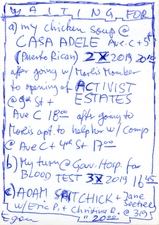 WAITING FOR
a) my chicken soup @
CASA ADELE Ave. C + 5th
(Puerto Rican) 2X 2019 20
after going w/ Merlis Member
to opening of ACTIVIST
@ 9th St + ESTATES
Ave C 18 00 after going to
Merlis apt. to help her w/ Comp
@ Ave C + 4th St 17 00
b) My turn @ Gouv. Hosp. for
BLOOD TEST 3X 2019 11 45
c) ADAM CHICK + Jane
w/ Eric P. + Christina @ 3
Egon 2020